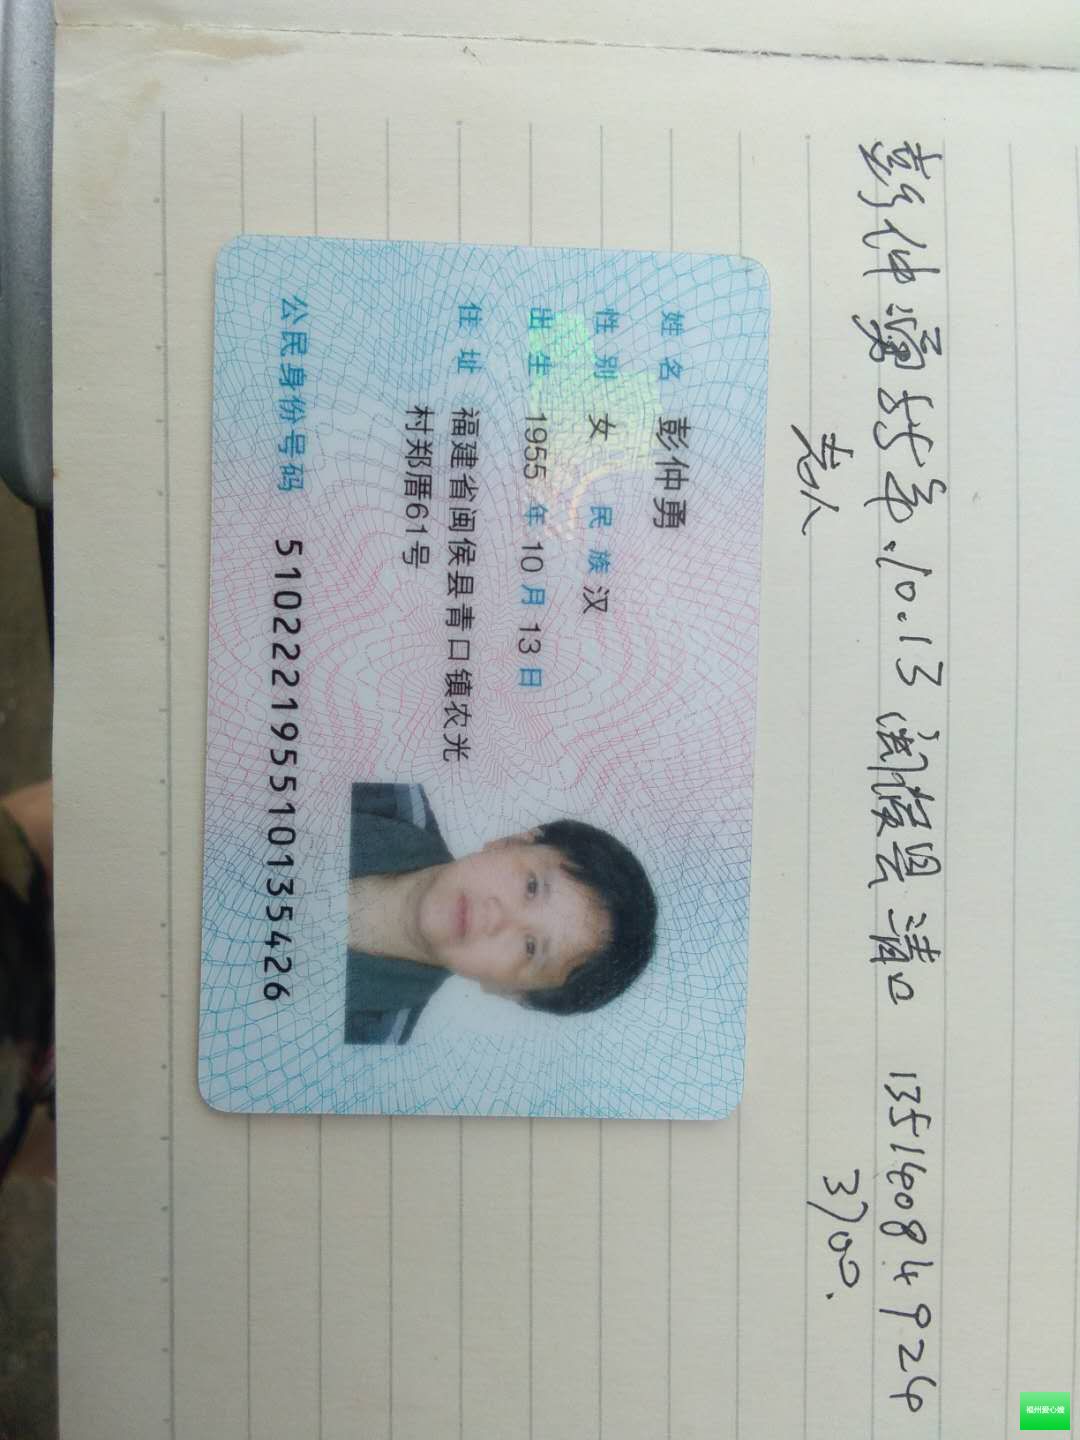 彭仲湧 10.13 闽侯县清口 13514084924
老人 3700.
姓名 彭仲勇
性别 女 民族 汉
出生 1955 年 10 月 13 日
住址 福建省闽侯县青口镇农光
村郑厝61号
公民身份号码 510222195510135426
福州爱心嫂